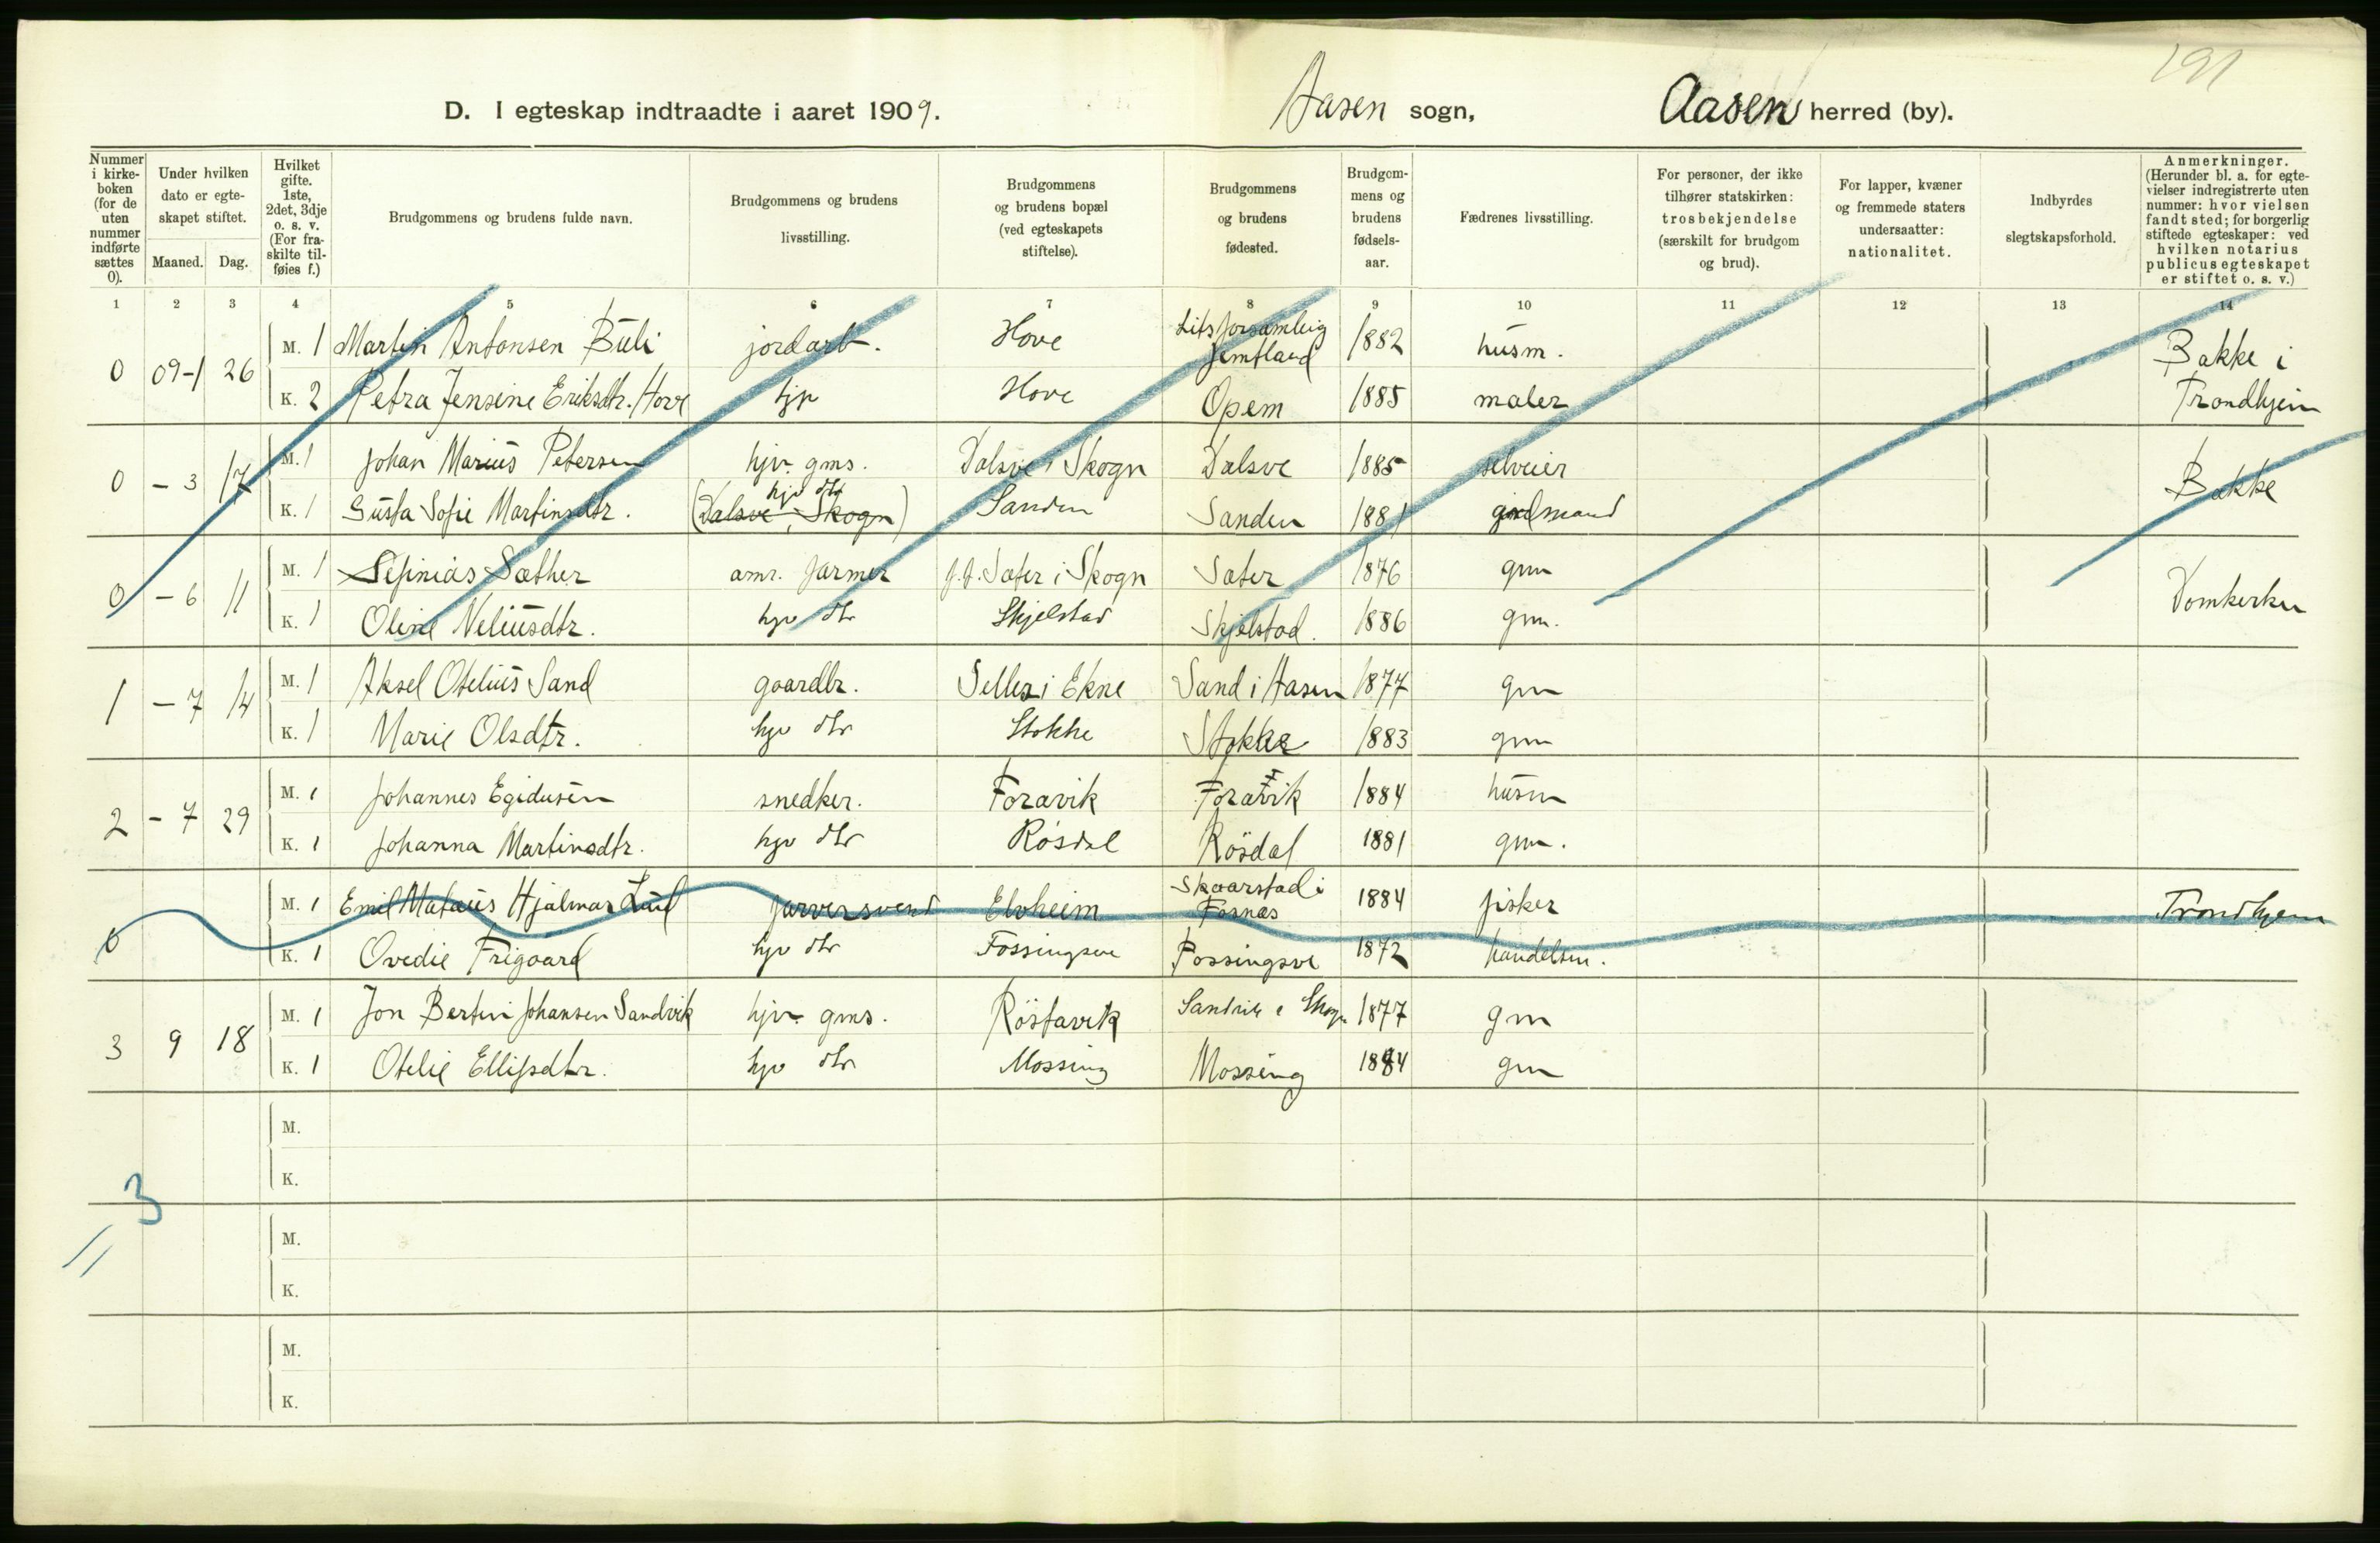 191
D. I egteskap indtraadte i aaret 1909. Aasen sogn, Aasen herred (by).
Nummer i kirke-boken (for de uten nummer indførte sættes 0).
Under hvilken dato er egte-skapet stiftet.
Maaned. Dag.
Hvilket gifte. 1ste, 2det, 3dje o. s. v. (For fra-skilte til-føies f.)
Brudgommens og brudens fulde navn.
Brudgommens og brudens livsstilling.
Brudgommens og brudens bopæl (ved egteskapets stiftelse).
Brudgommens og brudens fødested.
Brudgom-mens og brudens fødsels-aar.
Fædrenes livsstilling.
For personer, der ikke tilhører statskirken: trosbekjendelse (særskilt for brudgom og brud).
For lapper, kvæner og fremmede staters undersaatter: nationalitet.
Indbyrdes slegtskapsforhold.
Anmerkninger. (Herunder bl. a. for egte-vielser indregistrerte uten nummer: hvor vielsen fandt sted; for borgerlig stiftede egteskaper: ved hvilken notarius publicus egteskapet er stiftet o. s. v.)
1 2 3 4 5 6 7 8 9 10 11 12 13 14
0 09-1 26
M. 1 Martin Antonsen Buli jordarb. Hove Jemtland 1882 husm. Bakke i
K. 2 Petra Jensine Eriksdtr. Hove hjv Hove Opem 1885 maler Trondhjem
0 - 3 17
M. 1 Johan Marius Petersen hjv. gms. Dalsve i Skogn Dalsve 1885 selveier Bakke
K. 1 Gusta Sofie Martinsdtr. hjv dtr (Dalsve i Skogn) Sanden Sanden 1881
0 - 6 11
M. 1 Sefinias Sæther amr. farmer f.t. Sæter i Skogn Sæter 1876 gm Domkirken
K. 1 Oline Neliusdtr. hjv dtr Skjelstad Skjelstad. 1886 gm.
1 - 7 14
M. 1 Aksel Otelius Sand gaardbr. Selles i Ekne Sand i Aasen 1877 gm
K. 1 Marie Olsdtr. hjv dtr Stokke Stokke 1883 gm
2 - 7 29
M. 1 Johannes Egidusen snedker. Foravik Foravik 1884 husm
K. 1 Johanna Martinsdtr. hjv dtr Røsdal Røsdal 1881 gm.
0
M. 1 Emil Mataus Hjalmar Lund farversvend Elvheim Skaarstad i Fosnæs 1884 fisker Trondhjem
K. 1 Ovedie Frigaard hjv dtr Fossingsve Fossingsve 1872 handelsm.
3 9 18
M. 1 Jon Bertin Johansen Sandvik hjv. gms. Røstavik Sandvik i Skogn 1877 gm
K. 1 Otelie Ellifsdtr. hjv dtr Mossing Mossing 1884 gm
M.
K.
3
M.
K.
M.
K.